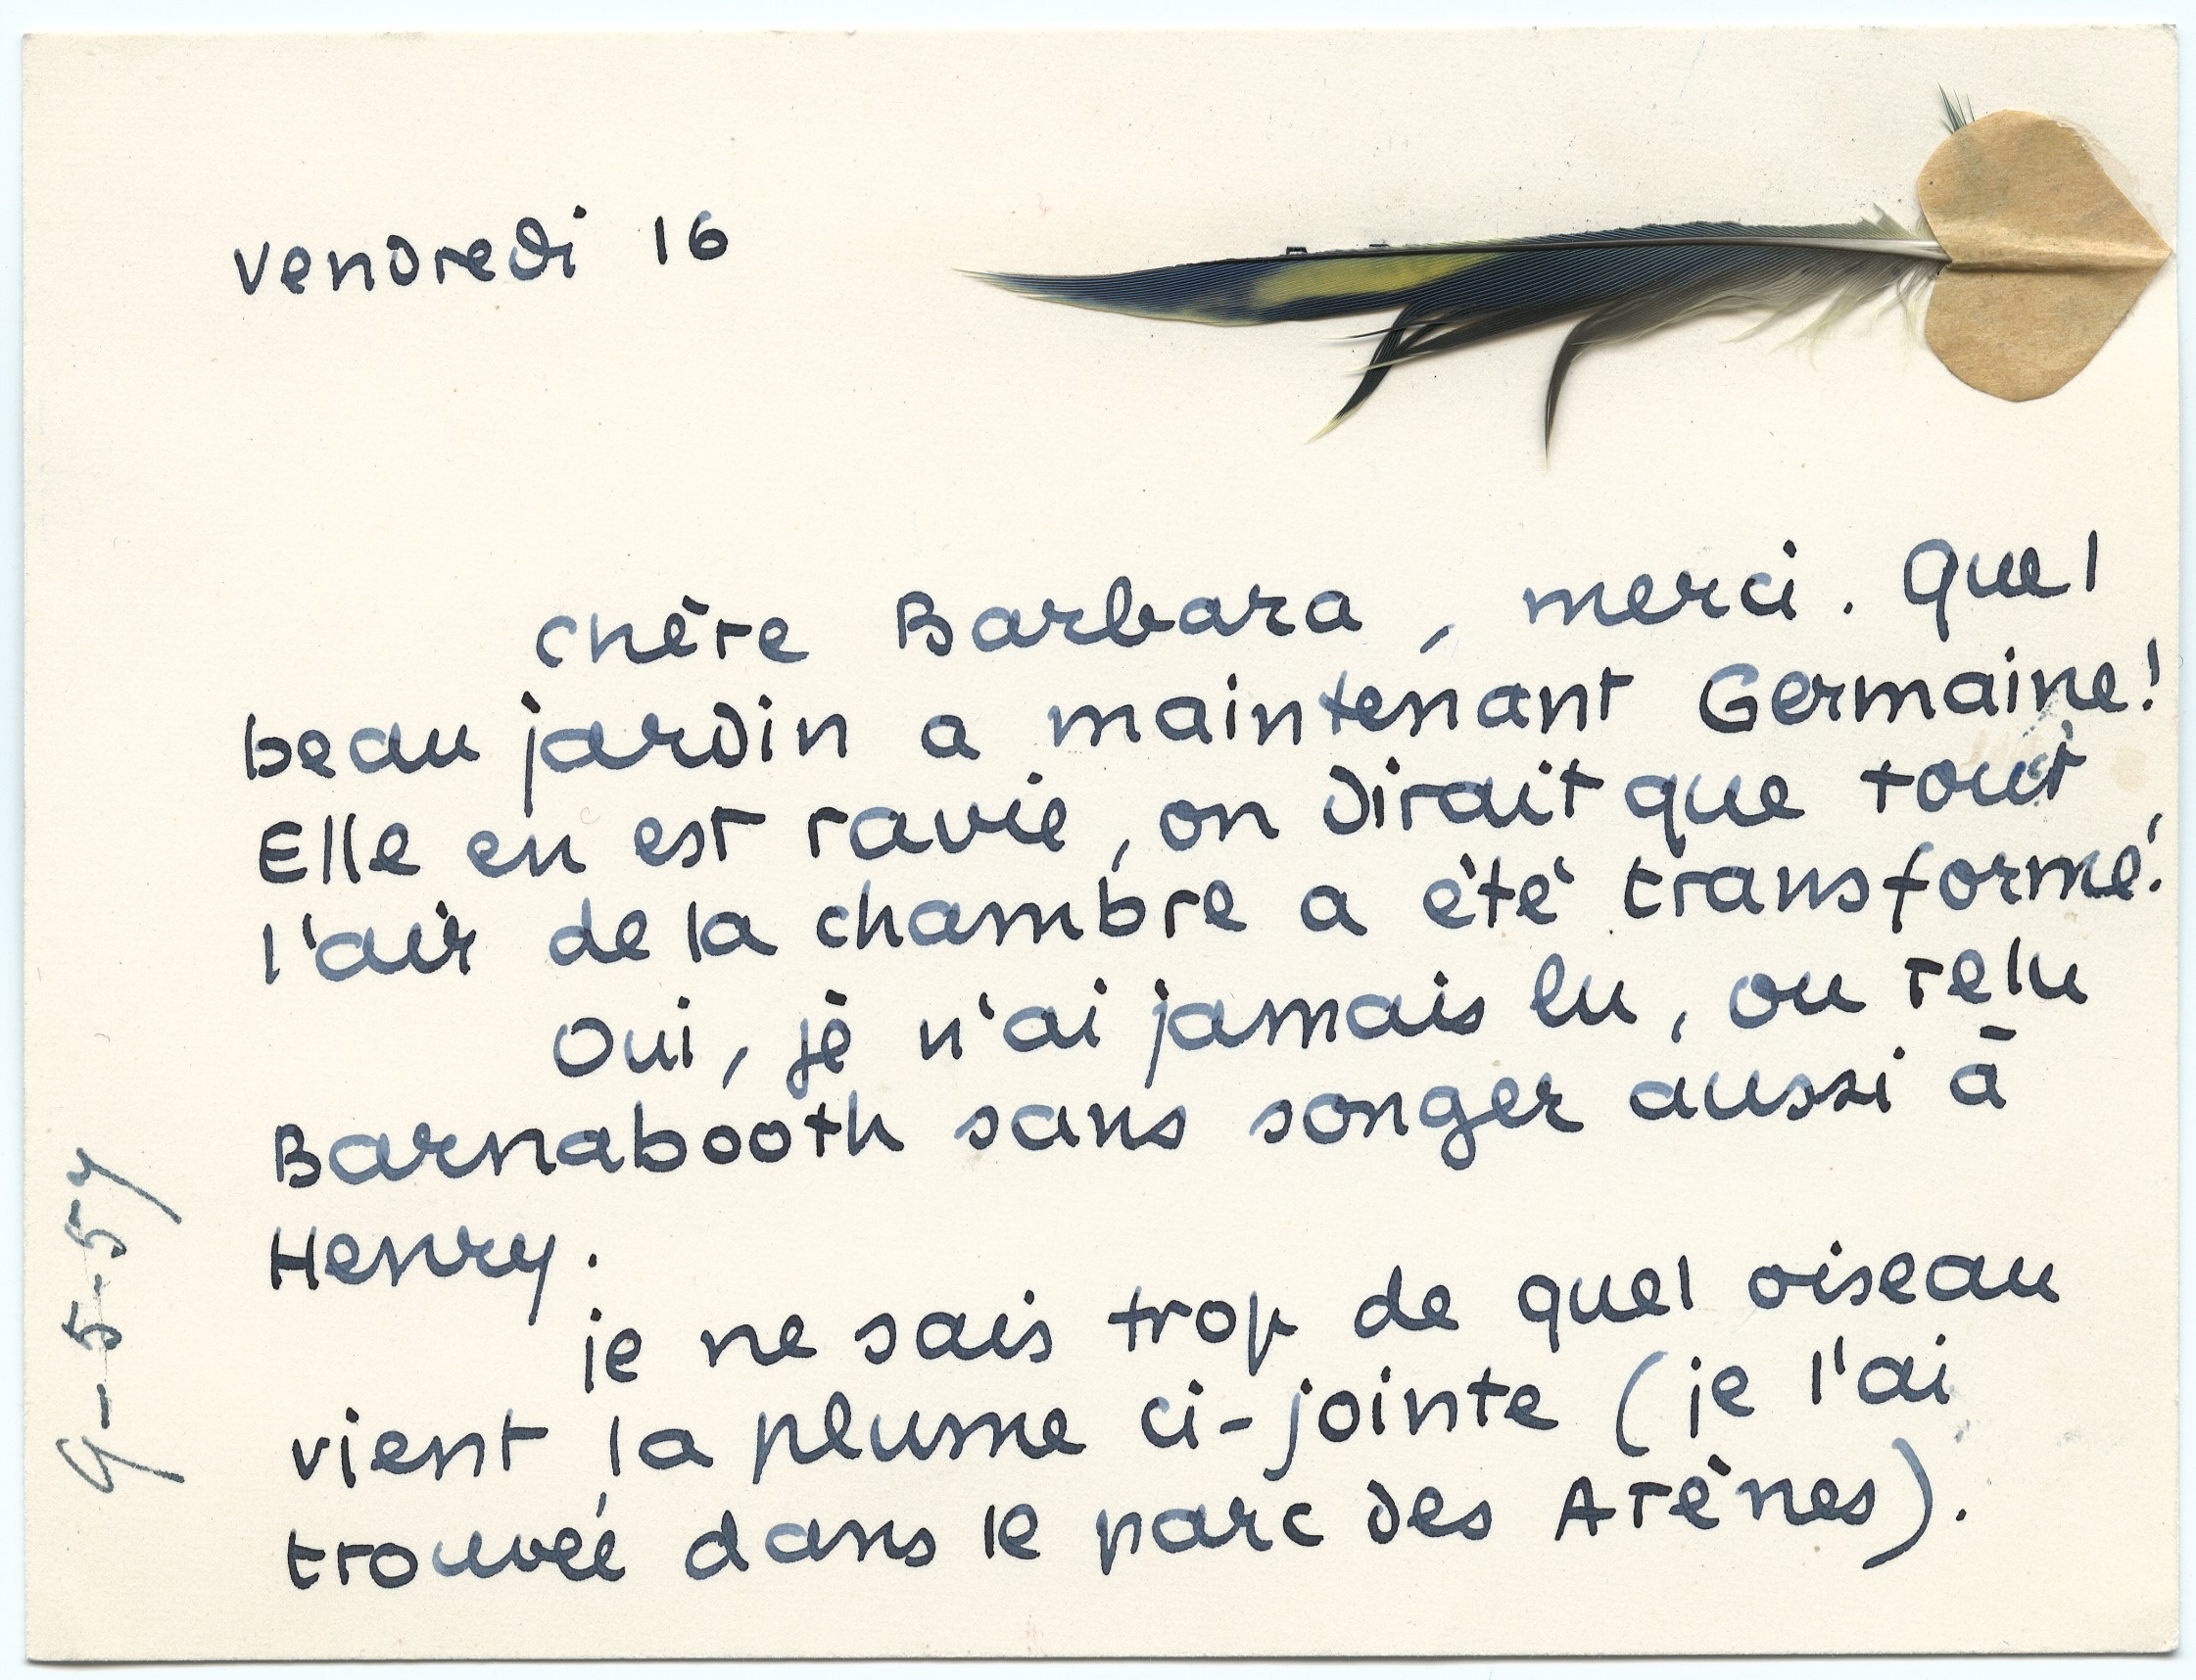 vendredi 16
chère Barbara, merci. Quel
beau jardin a maintenant Germaine!
Elle en est ravie, on dirait que tout,
l'air de la chambre a été transformé.
Oui, je n'ai jamais lu, ou relu
Barnabooth sans songer aussi à
Henry.
je ne sais trop de quel oiseau
vient la plume ci-jointe (je l'ai
trouvée dans le parc des Arènes).